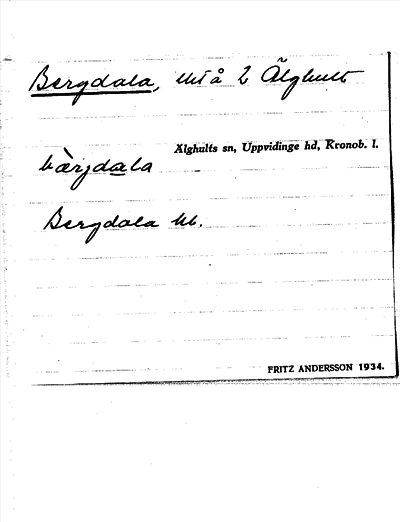 Bergdala, utså 2 Älghult
Älghults sn, Uppvidinge hd, Kronob. l.
bàrjdala
Bergdala ub.
FRITZ ANDERSSON 1934.